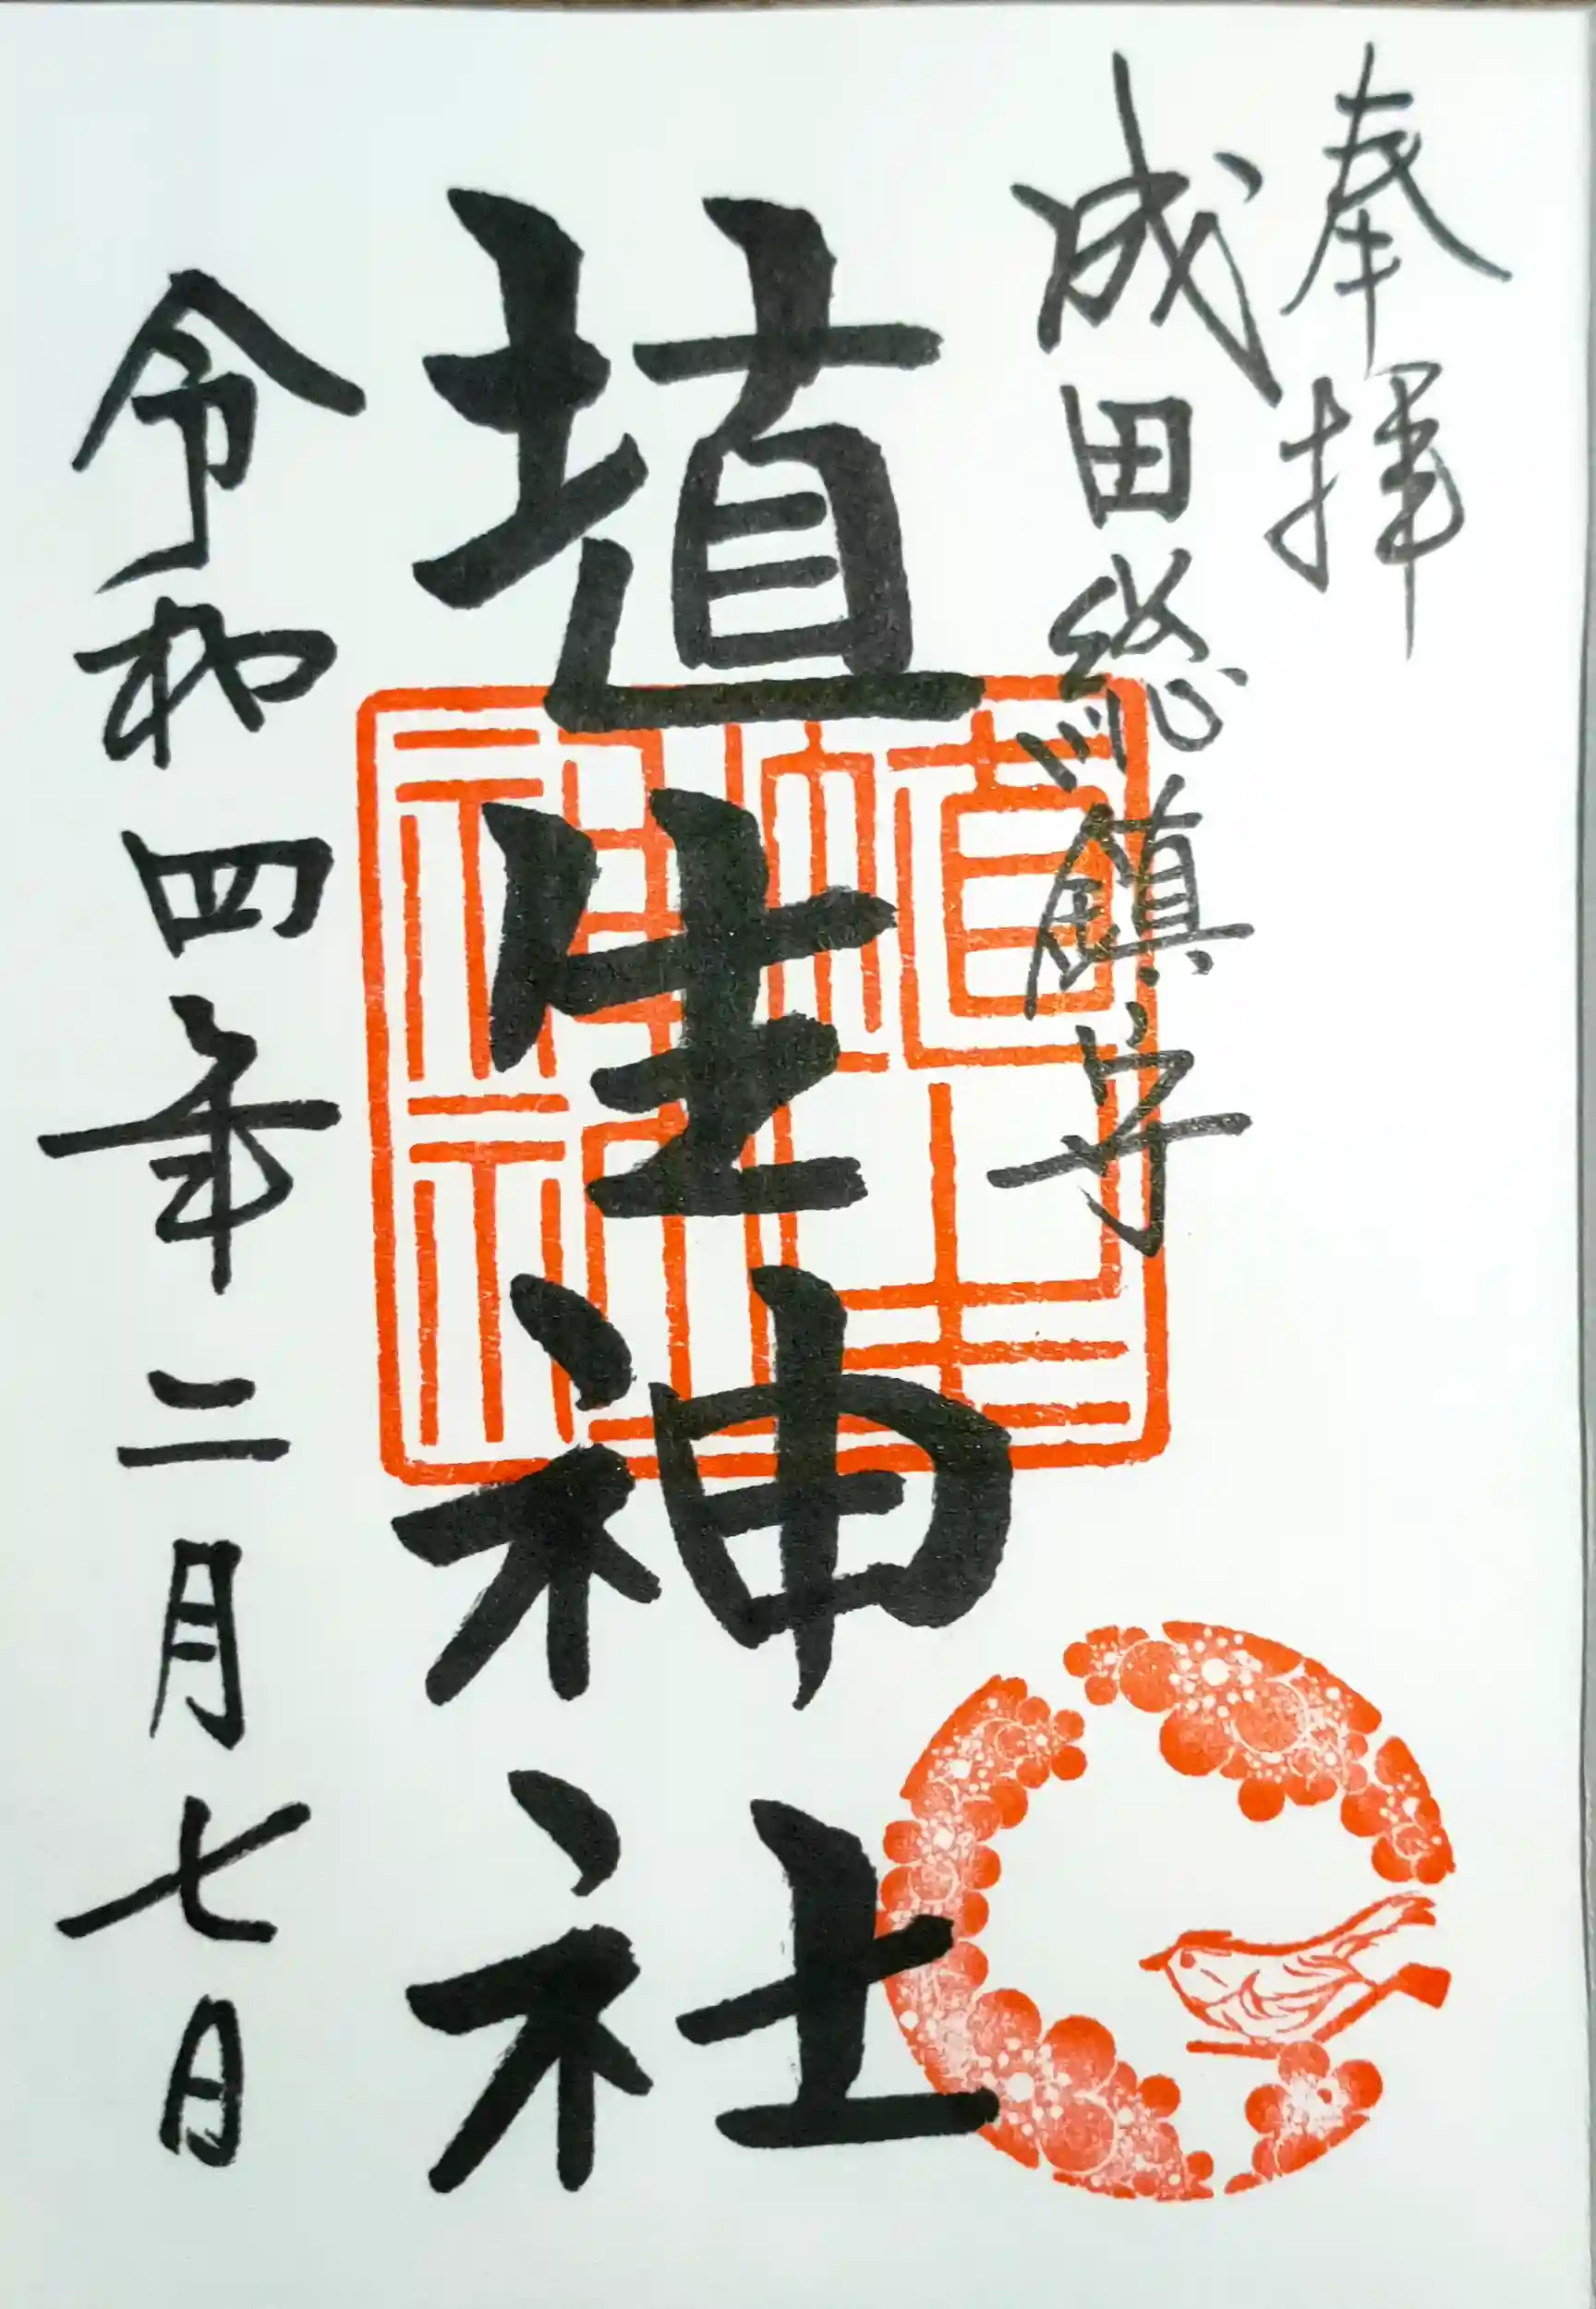 奉拝
成田総鎮守
埴生神社
埴生神社
令和四年二月七日